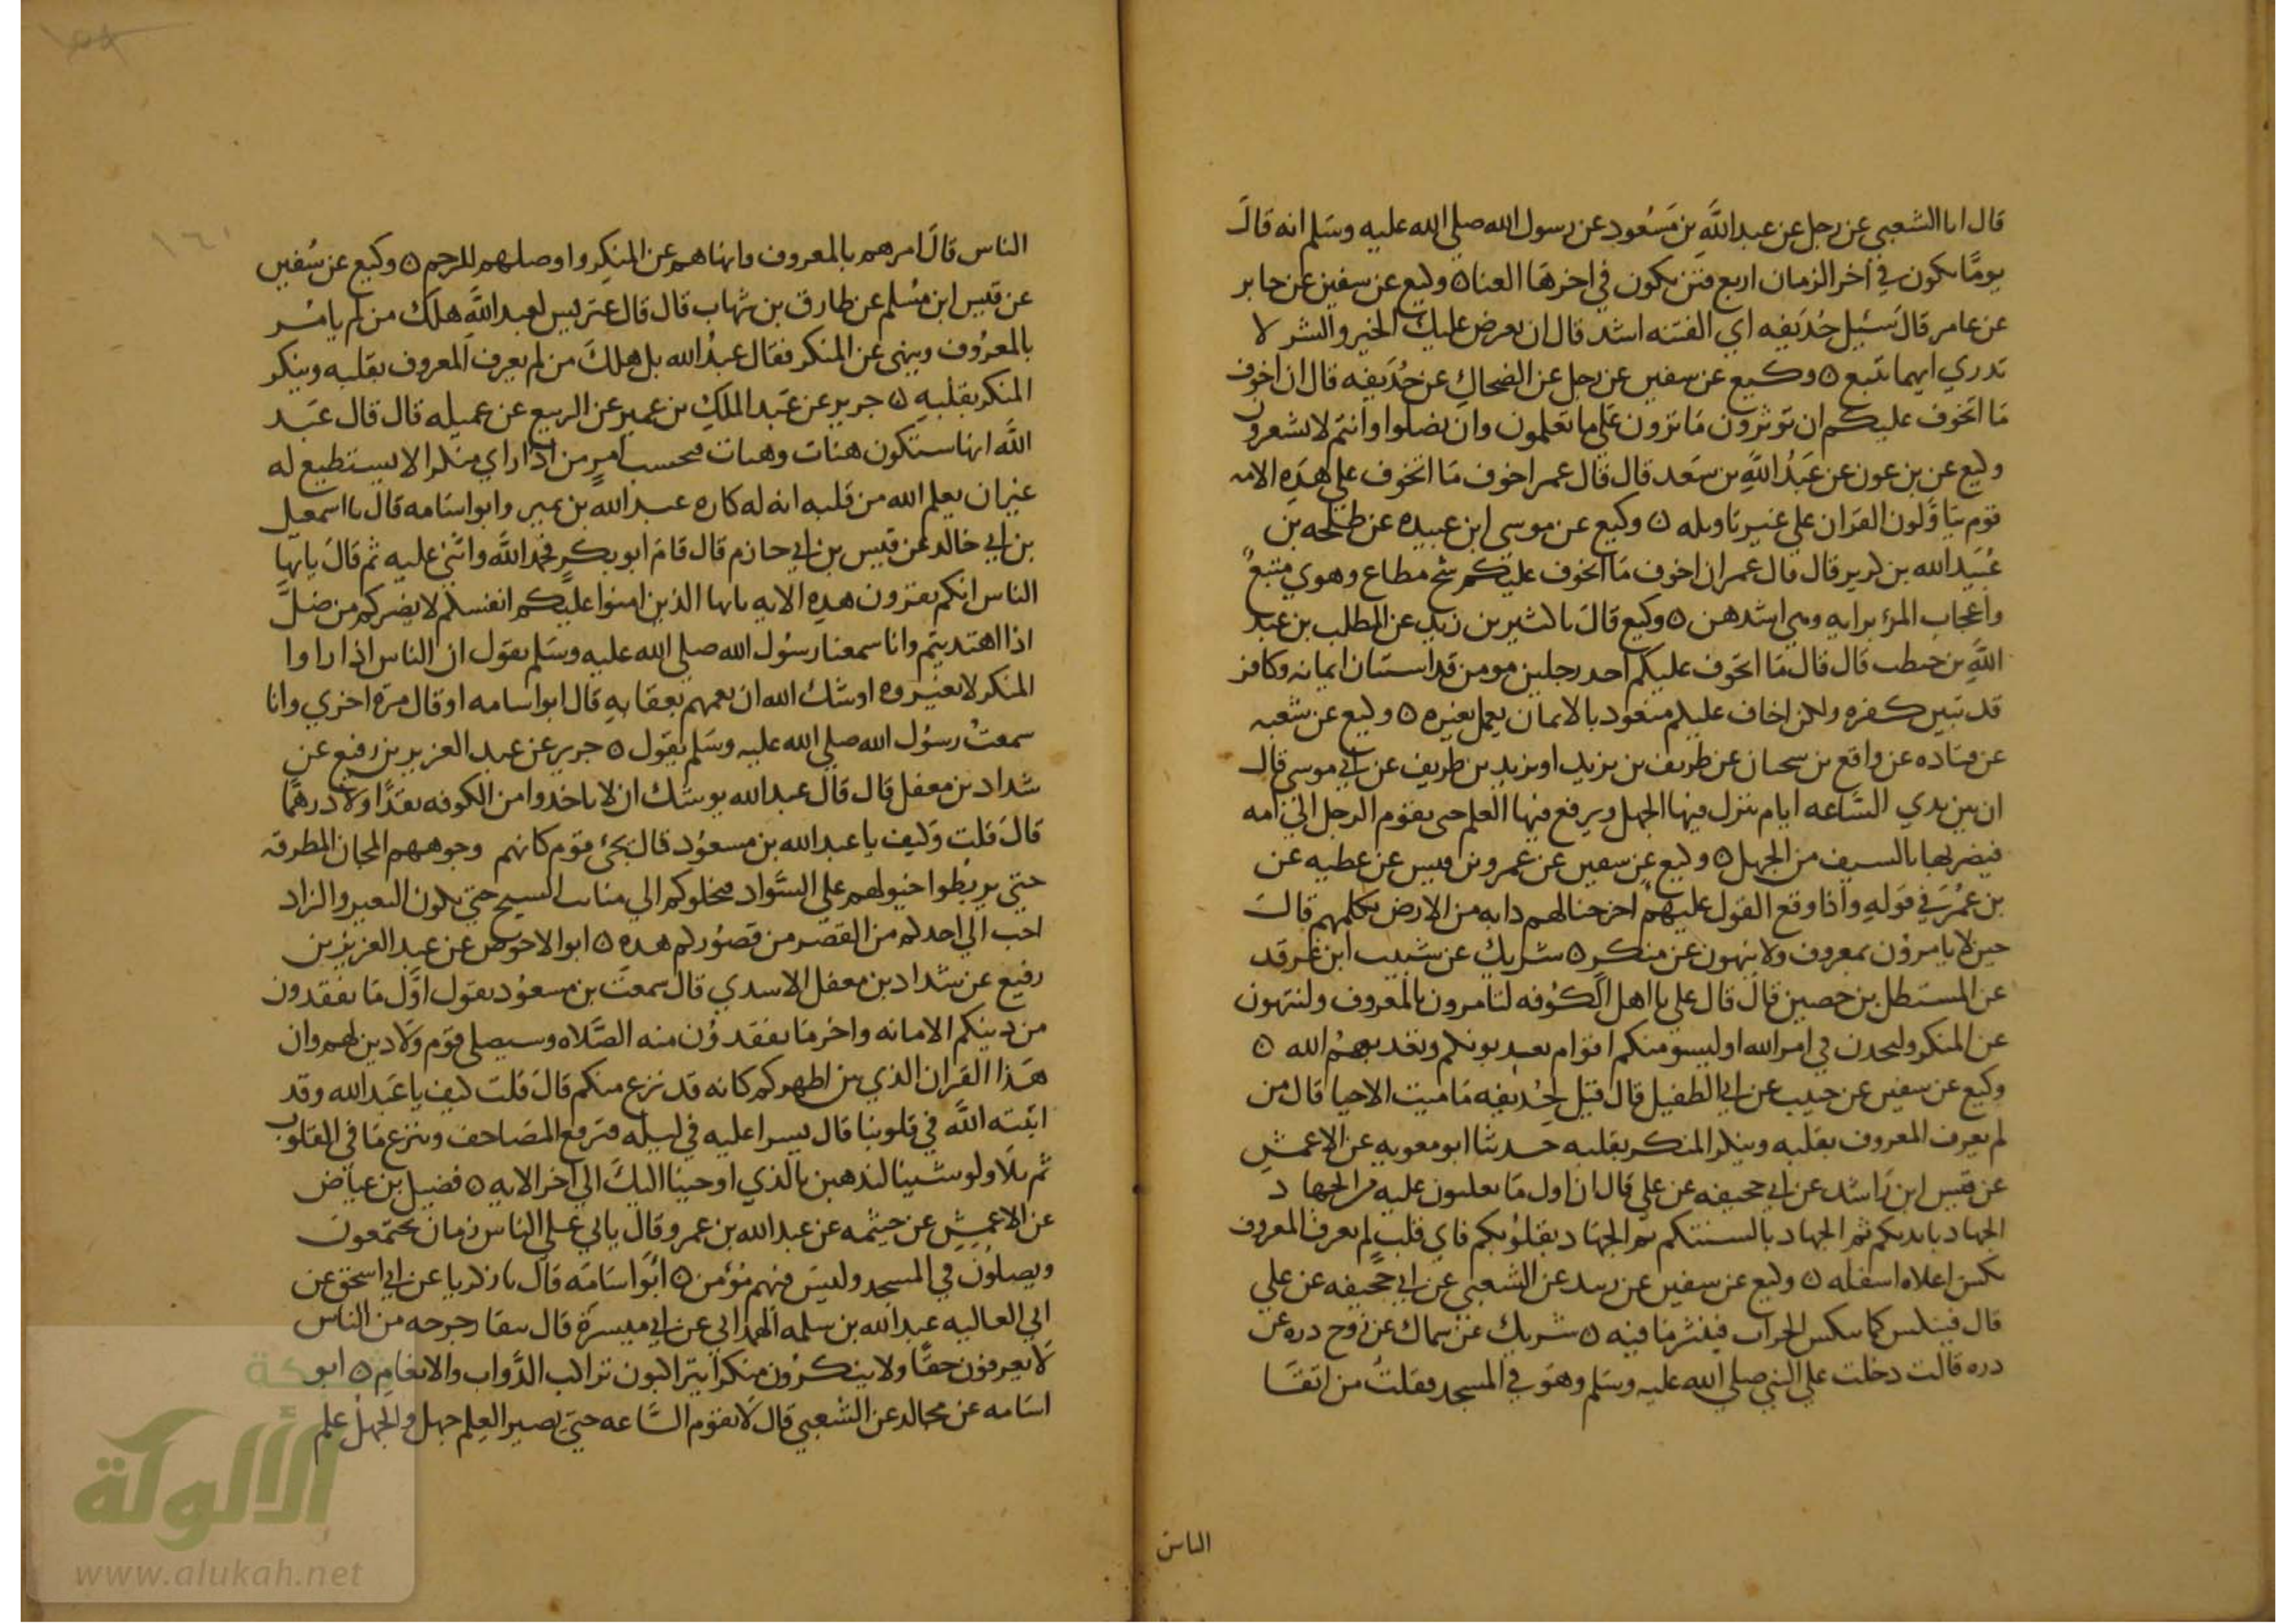 قال انا الشعبي عن رجل عن عبد الله بن مسعود عن رسول الله صلي الله عليه وسلم انه قال
يوما يكون في اخر الزمان اربع فتن يكون في اخرها الفنا ٥ وكيع عن سفين عن جابر
عن عامر قال سئل حذيفه اي الفتنه اشد قال ان يعرض عليك الخير والشر لا
تدري ايهما تتبع ٥ وكيع عن سفين عن رجل عن الضحاك عن حذيفه قال ان اخوف
ما اتخوف عليكم ان توثرون ما ترون علي ما تعلمون وان تضلوا وانتم لا تشعرون
وكيع عن بن عون عن عبد الله بن سعد قال قال عمر اخوف ما اتخوف علي هذه الامه
قوم يتاولون القران علي غير تاويله ٥ وكيع عن موسي ابن عبيده عن طلحه بن
عبيد الله بن كرير قال قال عمر ان اخوف ما اتخوف عليكم شح مطاع وهوي متبع
واعجاب المرء برايه وهي اشدهن ٥ وكيع قال نا كثير بن زيد عن المطلب بن عبد
الله بن حنطب قال قال ما اتخوف عليكم احد رجلين مومن قد استبان ايمانه وكافر
قد تبين كفره ولكن اخاف عليكم متعوذ بالايمان يعمل بغيره ٥ وكيع عن شعبه
عن قتاده عن واقع بن سحبان عن طريف بن يزيد او يزيد بن طريف عن ابي موسي قال
ان بين يدي الساعه ايام ينزل فيها الجهل ويرفع فيها العلم حتي يقوم الرجل الي امه
فيضربها بالسيف من الجهل ٥ وكيع عن سفين عن عمرو بن قيس عن عطيه عن
بن عمر في قوله واذا وقع القول عليهم اخرجنا لهم دابه من الارض تكلمهم قال
حين لا يامرون بمعروف ولا ينهون عن منكر ٥ شريك عن شبيب ابن غرقد
عن المستظل بن حصين قال قال علي يا اهل الكوفه لتامرون بالمعروف ولتنهون
عن المنكر ولتجدن في امر الله او ليسومنكم اقوام يعذبونكم ويعذبهم الله ٥
وكيع عن سفين عن حبيب عن ابي الطفيل قال قيل لحذيفه ما ميت الاحيا قال من
لم يعرف المعروف بقلبه وينكر المنكر بقلبه حدثنا ابو معويه عن الاعمش
عن قيس ابن راشد عن ابي جحيفه عن علي قال ان اول ما تغلبون عليه من الجهاد
الجهاد بايديكم ثم الجهاد بالسنتكم ثم الجهاد بقلوبكم فاي قلب لم يعرف المعروف
نكس اعلاه اسفله ٥ وكيع عن سفين عن زبيد عن الشعبي عن ابي جحيفه عن علي
قال فينكس كما ينكس الجراب فينثر ما فيه ٥ شريك عن سماك عن زوج دره عن
دره قالت دخلت علي النبي صلي الله عليه وسلم وهو في المسجد فقلت من اتقا
الناس
الناس قال امرهم بالمعروف وانهاهم عن المنكر واوصلهم للرحم ٥ وكيع عن سفين
عن قيس ابن مسلم عن طارق بن شهاب قال قال عتريس لعبد الله هلك من لم يامر
بالمعروف وينهي عن المنكر فقال عبد الله بل هلك من لم يعرف المعروف بقلبه وينكر
المنكر بقلبه ٥ جرير عن عبد الملك بن عمير عن الربيع عن عميله قال قال عبد
الله انها ستكون هنات وهنات فحسب امر من اذا راي منكرا لا يستطيع له
غير ان يعلم الله من قلبه انه له كاره عبد الله بن نمير وابو اسامه قال نا اسمعيل
بن ابي خالد عن قيس بن ابي حازم قال قام ابو بكر فحمد الله واثني عليه ثم قال يايها
الناس انكم تقرون هذه الايه يايها الذين امنوا عليكم انفسكم لا يضركم من ضل
اذا اهتديتم وانا سمعنا رسول الله صلي الله عليه وسلم يقول ان الناس اذا راوا
المنكر لا يغيروه اوشك الله ان يعمهم بعقابه قال ابو اسامه او قال مره اخري وانا
سمعت رسول الله صلي الله عليه وسلم يقول ٥ جرير عن عبد العزيز بن رفيع عن
شداد بن معقل قال قال عبد الله يوشك ان لا تاخذوا من الكوفه نقدا ولا درهما
قال قلت وكيف يا عبد الله بن مسعود قال يجئ قوم كانهم وجوههم المجان المطرقه
حتي يربطوا خيولهم علي السواد فيجلوكم الي منابت الشيح حتي يكون البعير والزاد
احب الي احدكم من القصر من قصوركم هذه ٥ ابو الاحوص عن عبد العزيز بن
رفيع عن شداد بن معقل الاسدي قال سمعت بن مسعود يقول اول ما تفقدون
من دينكم الامانه واخر ما تفقدون منه الصلاه وسيصلي قوم ولا دين لهم وان
هذا القران الذي بين اظهركم كانه قد نزع منكم قال قلت كيف يا عبد الله وقد
اثبته الله في قلوبنا قال يسرا عليه في ليله فترفع المصاحف وينزع ما في القلوب
ثم تلا ولو شينا لنذهبن بالذي اوحينا اليك الي اخر الايه ٥ فضيل بن عياض
عن الاعمش عن خيثمه عن عبد الله بن عمرو قال ياتي علي الناس زمان يجتمعون
ويصلون في المسجد وليس فيهم مؤمن ٥ ابو اسامه قال نا زكريا عن ابي اسحق عن
ابي العاليه عبد الله بن سلمه الهمداني عن ابي ميسرة قال يبقا رجرجه من الناس
لا يعرفون حقا ولا ينكرون منكرا يتراكبون تراكب الدواب والانعام ٥ ابو
اسامه عن مجالد عن الشعبي قال لا تقوم الساعه حتي يصير العلم جهل والجهل علم
١٦١
شبكة
الألوكة
www.alukah.net